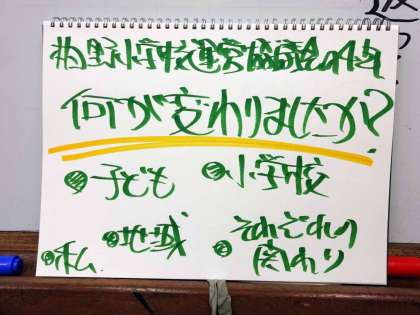 小学校運営協議会の
何が変わりましたか?
子ども
小学校
私
地域
それぞれの
関わり